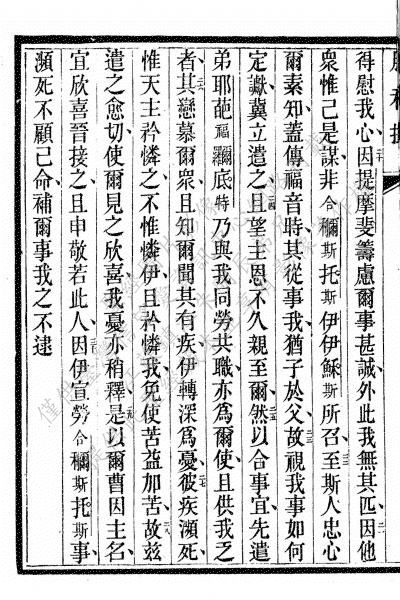 得慰我心因提摩斐籌慮爾事甚誠外此我無其匹因他
衆惟己是謀非合穪斯托斯伊伊穌斯所召至斯人忠心
爾素知蓋傳福音時其從事我猶子於父故視我事如何
定讞冀立遣之且望主恩不久親至爾然以合事宜先遣
弟耶葩福底特乃與我同勞共職亦爲爾使且供我乏
者其戀慕爾衆且知爾聞其有疾伊轉深爲憂彼疾瀕死
惟天主矜憐之不惟憐伊且矜憐我免使苦益加苦故茲
遣之愈切使爾見之欣喜我憂亦稍釋是以爾曹因主名
宜欣喜晉接之且申敬若此人因伊宣勞合穪斯托斯事
瀕死不顧己命補爾事我之不逮